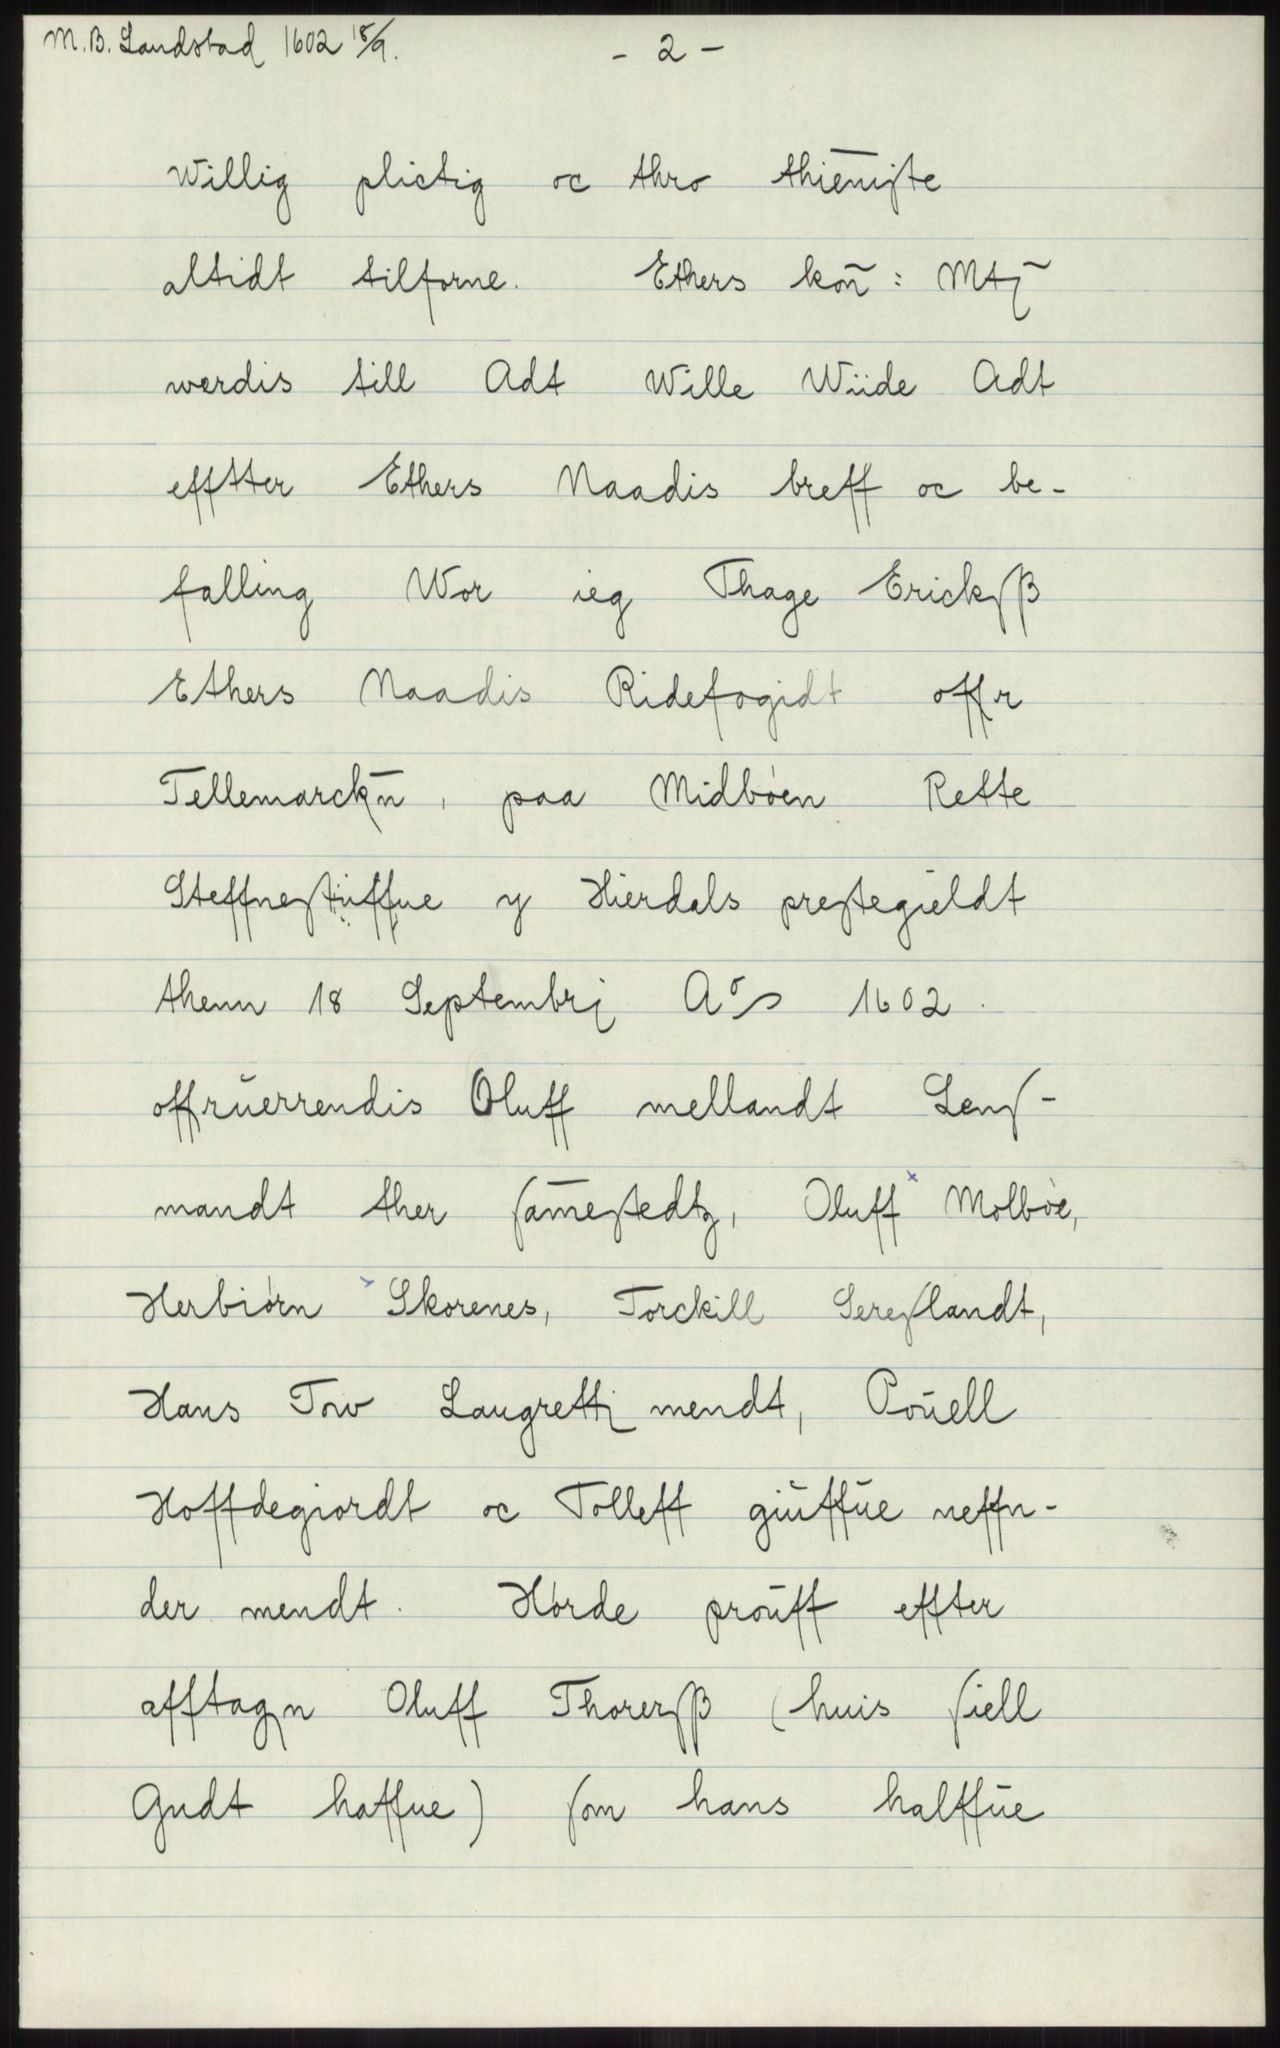 M.B. Landstad 1602 18/9.
- 2 -
Willig plictig oc thro thien̄iſte
altidt tilforne. Ethers kon̄: Mtꝭ
werdis till Adt Wille Wiide Adt
effter Ethers Naadis breff oc be-
falling Wor ieg Thage Erickſß
Ethers Naadis Ridefogidt offr
Tellemarckn̄, paa Midbøen Rette
Steffneſtuffue y Hierdals preſtegieldt
thenn 18 Septembrj Aᵒ 1602.
offruerrendis Oluff mellandt Lenſ-
mandt ther ſam̄eſtedtz, Oluff x Molbøe,
Herbiørn x Skorenes, Torckill Sereſlandt,
Hans Tow Laugrettj mendt, Pouell
Hoffdegiordt oc Tolleff giuffue neffn-
der mendt. Hørde prouff effter
afftagn Oluff Thorerſß (huis ſiell
Gudt haffue) ſom hans halffue